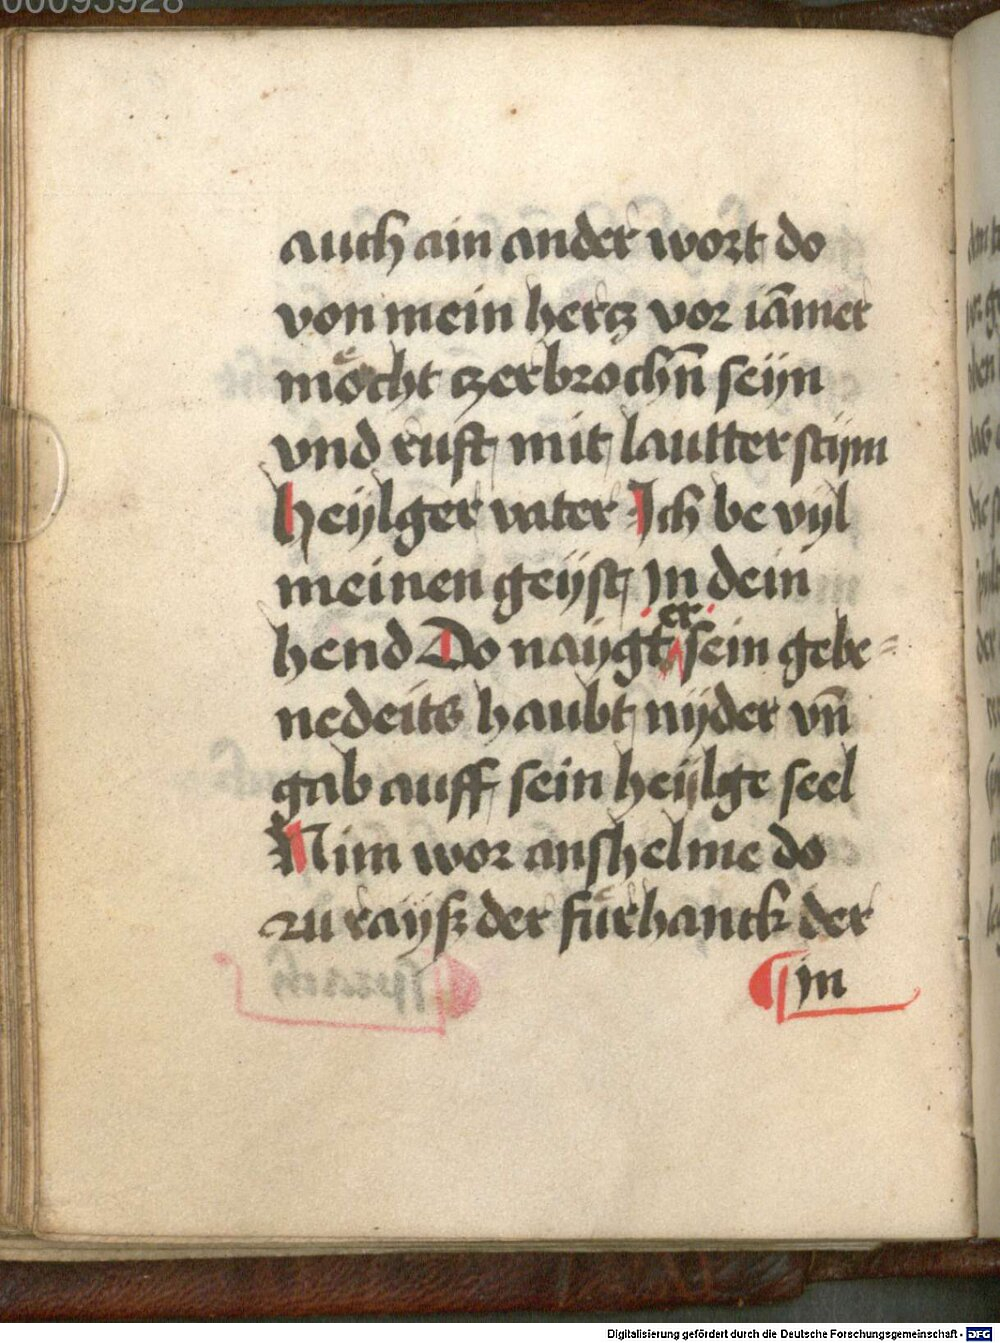 00095928
auch ain ander wort do
von mein hertz vor iām̄er
moͤcht czerbrochn̄ seyn
vnd ruft mit lautter stym
heylger vater Ich be vyl
meinen geyst Jn dein
hend Do naygt er sein gebe=
nedeits haubt nyder vn̄
gab auff sein heylge seel
Nim wor anshelme do
zu rayß der fuͤrhanck der
in
Digitalisierung gefördert durch die Deutsche Forschungsgemeinschaft - DFG